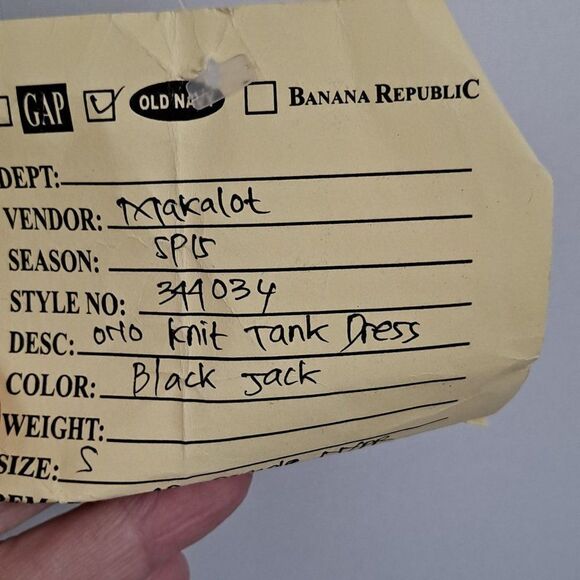 GAP OLD NAVY BANANA REPUBLIC
DEPT:
VENDOR: Makalot
SEASON: SP15
STYLE NO: 344034
DESC: Knit Tank Dress
COLOR: Black Jack
WEIGHT:
SIZE: S